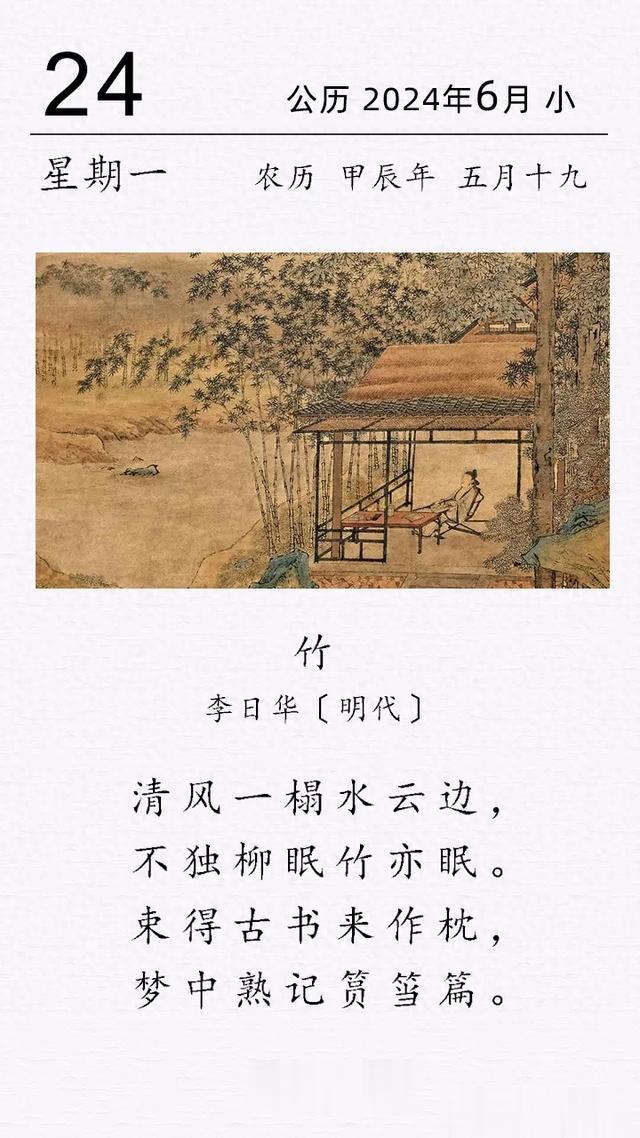 24
公历 2024年6月 小
星期一
农历 甲辰年 五月十九
竹
李日华〔明代〕
清风一榻水云边，
不独柳眠竹亦眠。
束得古书来作枕，
梦中熟记筼筜篇。